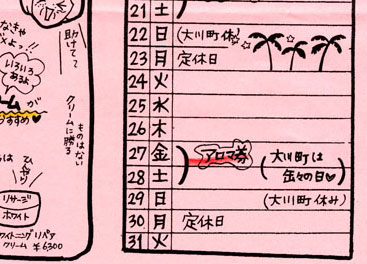 助けて〜
いろいろ
あるよ
が
すすめ♥
クリームに勝る
ものはない
リサージ
ホワイト
ホワイトニングリペア
クリーム ¥6,300
21 土
22 日 (大川町休み)
23 月 定休日
24 火
25 水
26 木
27 金 アロマ券 (大川町は
28 土 缶々の日♥)
29 日 (大川町休み)
30 月 定休日
31 火